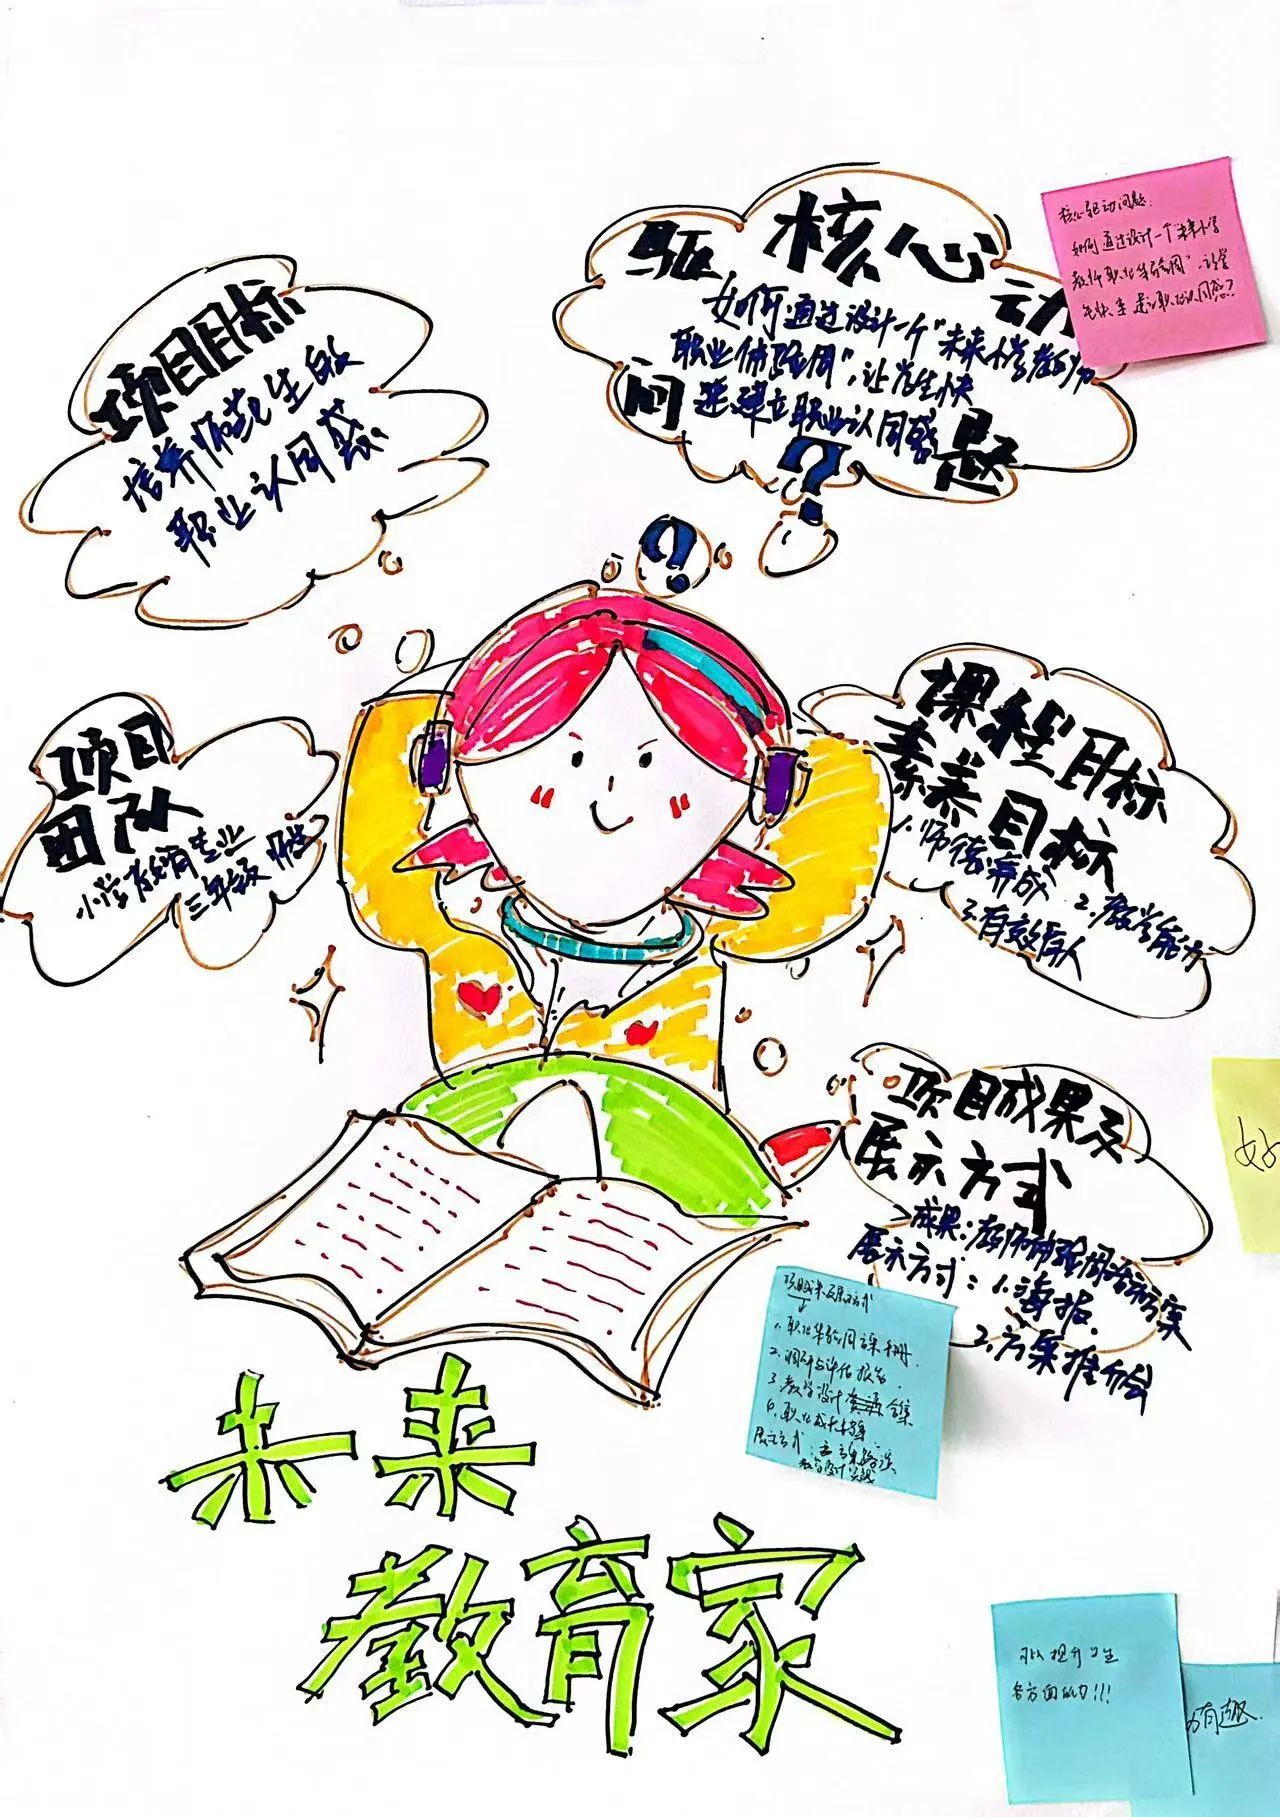 项目目标
培养师范生的
职业认同感
核心驱动问题
如何通过设计一个"未来小学教师
职业体验周",让学生快
速建立职业认同感
?
?
核心驱动问题:
如何通过设计一个"未来小学
教师职业体验周",让学
生快速建立职业认同感?
项目
团队
小学教育专业
三年级师生
课程目标
素养目标
1.师德养成 2.教学能力
3.有效育人
项目成果及
展示方式
成果:教师体验周活动方案
展示方式:1.海报.
2.方案推介会
项目成果及展示方式
1.职业体验周方案手册.
2.调研与评估报告.
3.教学设计 合集
4.职业成长档案
展示方式:
好
未来
教育家
可以提升学生
各方面能力!!!
有趣.